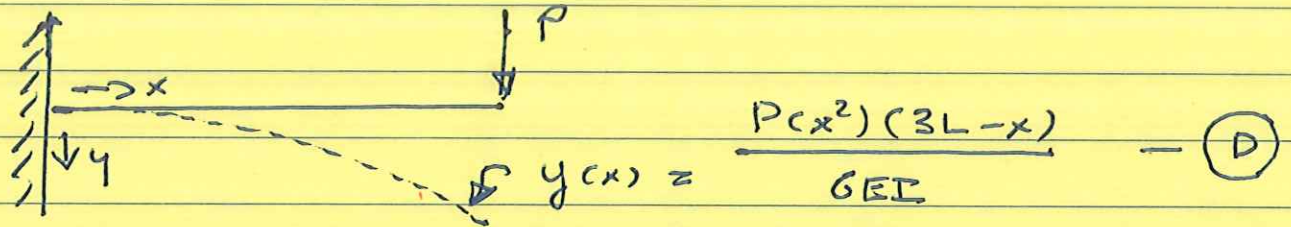 P
→x
↓y
y(x) = P(x²)(3L-x) / 6EI - (D)